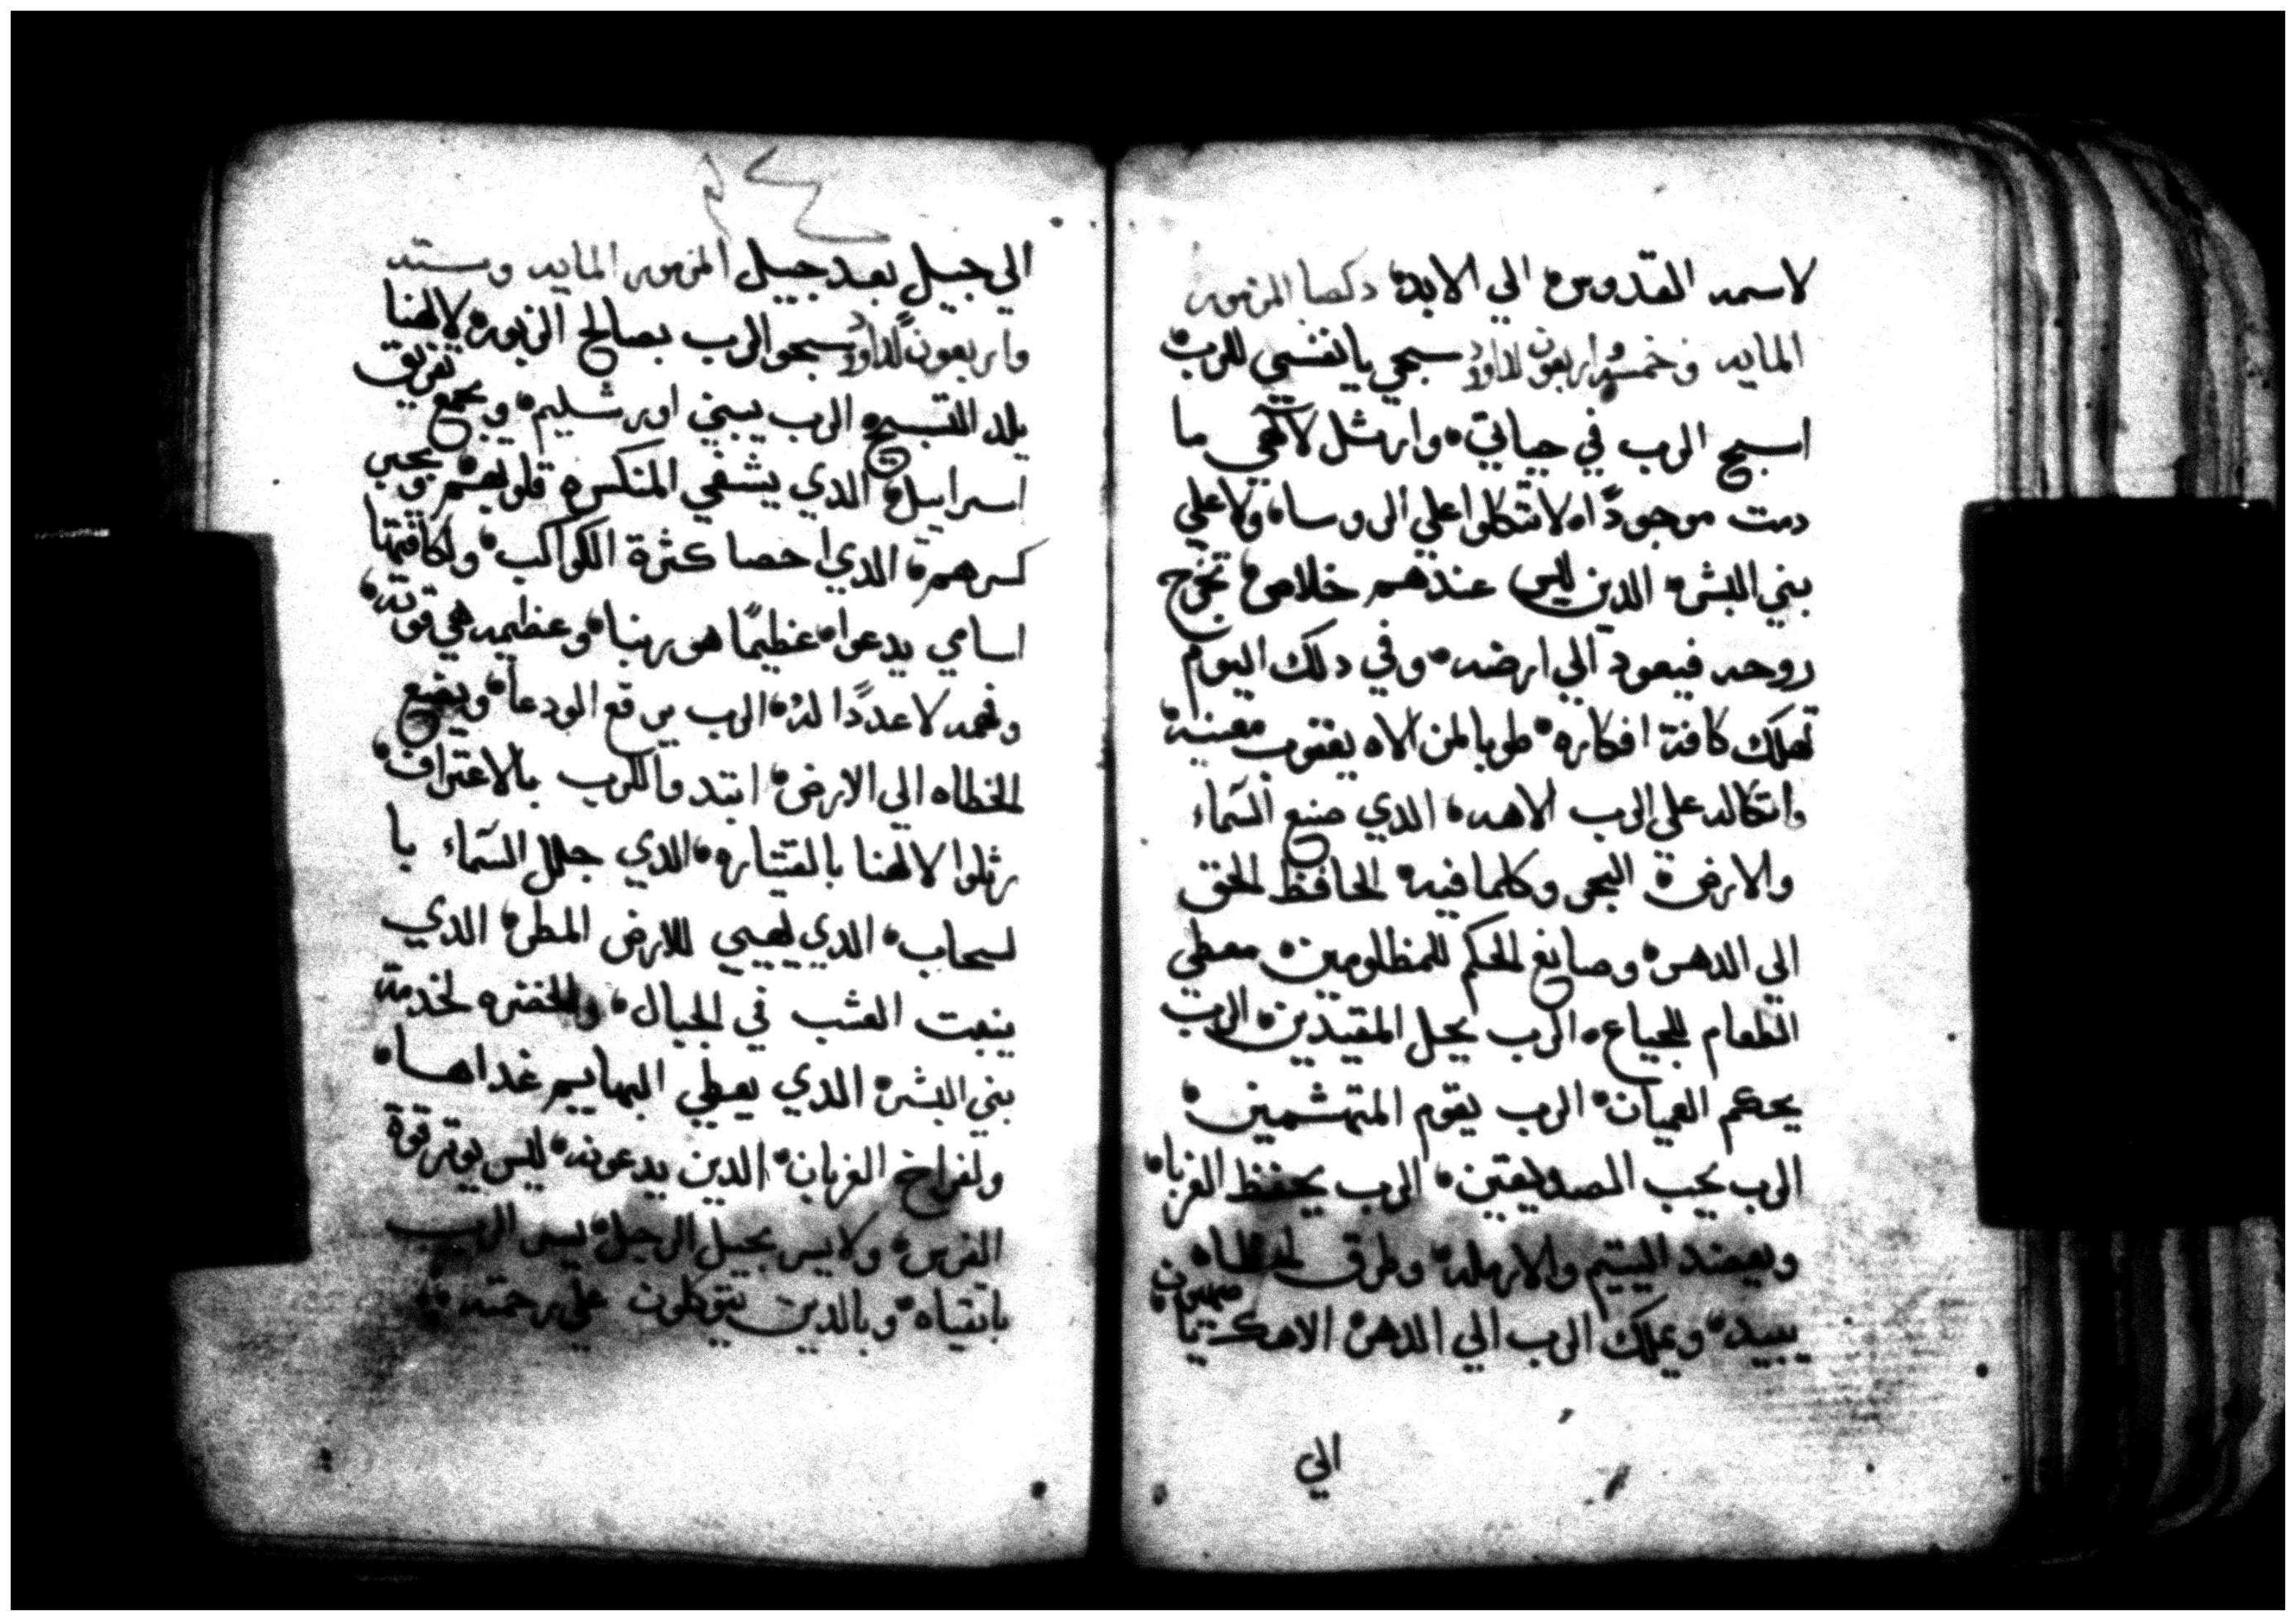 لاسمه القدوس الي الابد دكصا المزمور
المايه وخمسه واربعون لداود سبحي يا نفسي للرب
اسبح الرب في حياتي وارتل لالهي ما
دمت موجودًا لا تتكلوا علي الروسا ولا علي
بني البشر الدين ليس عندهم خلاص تخرج
روحه فيعود الي ارضه وفي دلك اليوم
تهلك كافة افكاره طوبا لمن الاه يعقوب معينه
واتكاله علي الرب الاهه الدي صنع السماء
والارض البحر وكلما فيه الحافظ الحق
الي الدهر وصانع الحكم للمظلومين معطي
الطعام للجياع الرب يحل المقيدين الرب
يحكم العميان الرب يقوم المتهشمين
الرب يحب الصديقين الرب يحفظ الغربا
ويعضد اليتيم والارمله وطرق الخطاه
يبيد ويملك الرب الي الدهر الاهك يا صهيون
الي
٢٤
الي جيل بعد جيل المزمور المايه وسته
واربعون لداود سبحو الرب بصالح الزبور لالهنا
يلد التسبيح الرب يبني اورشليم ويجمع تفريق
اسراييل الدي يشفي المنكسره قلوبهم ويجبر
كسرهم الدي احصا كثرة الكواكب ولكافتها
اسامي يدعوا عظيمًا هو ربنا وعظيمه هي قوته
وفهمه لا عددًا له الرب يرفع الودعا ويضع
الخطاه الي الارض ابتدوا للرب بالاعتراف
رتلوا لالهنا بالقيتاره الدي جلل السماء با
لسحاب الدي يهيي للارض المطر الدي
ينبت العشب في الجبال والخضره لخدمة
بني البشر الدي يعطي البهايم غداها
ولفراخ الغربان الدين يدعونه ليس يوتر قوة
الفرس ولا يسر بجيل الرجل يسر الرب
باتقياه وبالدين يتوكلون علي رحمته